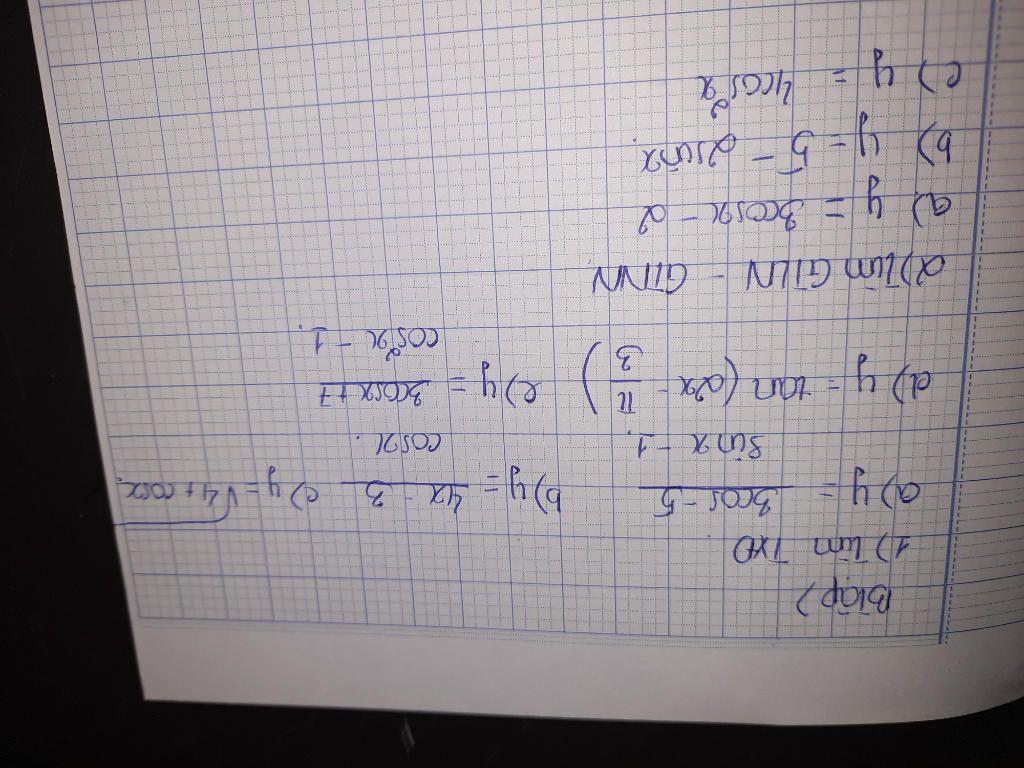 Btập)
1) Tìm TXĐ
a) y = \frac{3cos - 5}{sin x - 1} b) y = \frac{4x - 3}{cos x} c) y = \sqrt{4 + cos x}
d) y = tan (2x - \frac{π}{3}) e) y = \frac{3cos x + 7}{cos² x - 1}
2) Tìm GTLN - GTNN
a) y = 3cos x - 2
b) y = 5 - 2sin x
c) y = 4cos² x